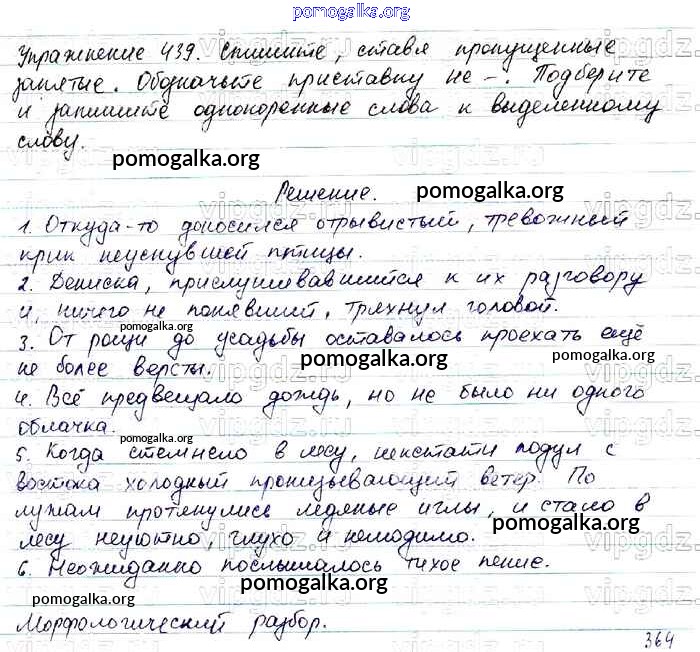 pomogalka.org
Упражнение 439. Спишите, ставя пропущенные
запятые. Обозначьте приставку не-. Подберите
и запишите однокоренные слова к выделенному
слову.
pomogalka.org
Решение. pomogalka.org
1. Откуда-то доносился отрывистый, тревожный
крик неуснувшей птицы.
2. Дениска, прислушивавшийся к их разговору
и, ничего не понявший, тряхнул головой.
pomogalka.org
3. От рощи до усадьбы оставалось проехать ещё
pomogalka.org pomogalka.org
не более версты.
4. Всё предвещало дождь, но не было ни одного
облачка.
pomogalka.org
5. Когда стемнело в лесу, некстати подул с
востока холодный пронизывающий ветер. По
лужам протянулись ледяные иглы, и стало в
pomogalka.org
лесу неуютно, глухо и нелюдимо.
6. Неожиданно послышалось тихое пение.
pomogalka.org
pomogalka.org
Морфологический разбор.
pomogalka.org
364